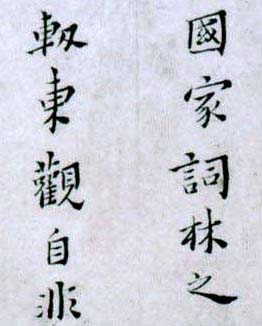 國家詞林之
東觀自非